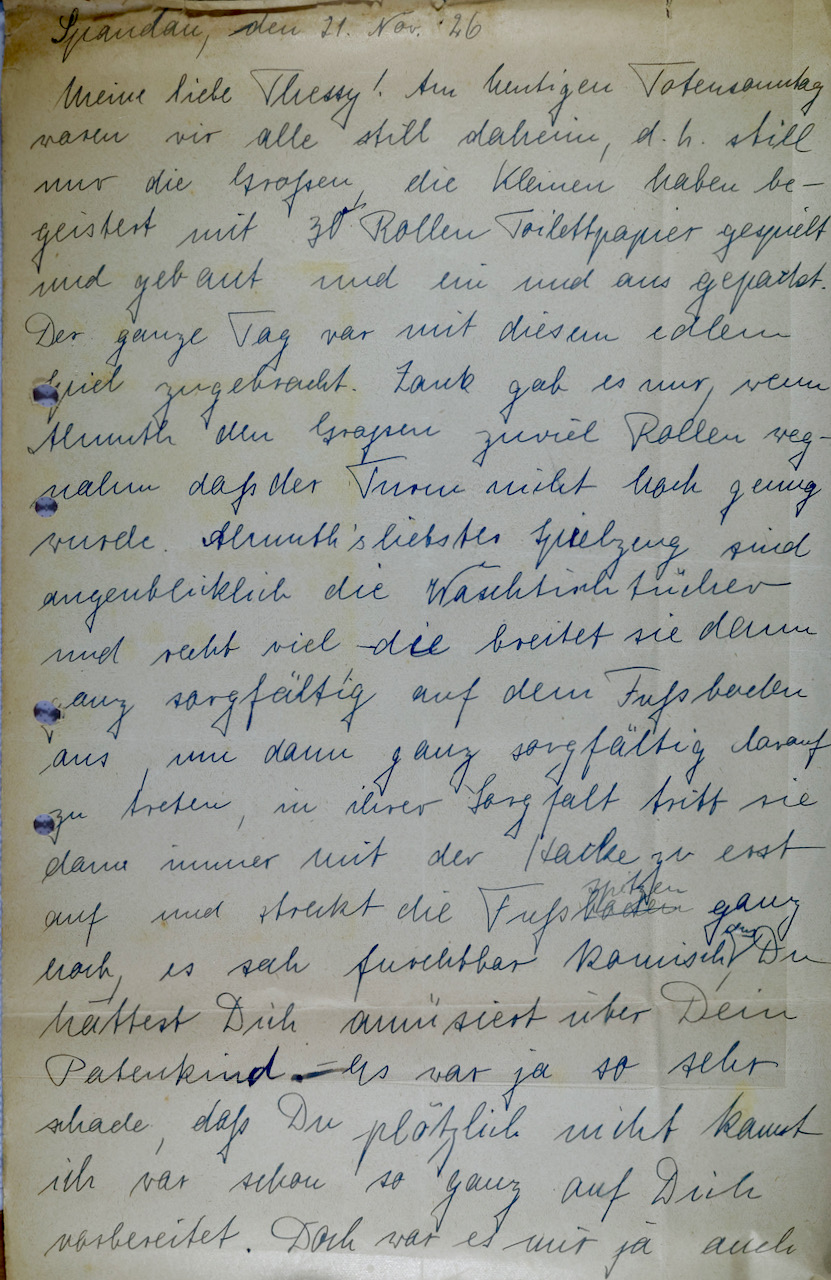 Spandau, den 21. Nov. 26
Meine liebe Thessy! Am heutigen Totensonntag
waren wir alle still daheim, d. h. still
nur die Großen, die Kleinen haben be-
geistert mit 30 Rollen Toilettpapier gespielt
und gebaut und ein und aus gepackt.
Der ganze Tag war mit diesem edlem
Spiel zugebracht. Zank gab es nur, wenn
Almuth den Großen zuviel Rollen weg-
nahm daß der Turm nicht hoch genug
wurde. Almuth's liebstes Spielzeug sind
augenblicklich die Waschtischtücher
und recht viel die breitet sie dann
ganz sorgfältig auf dem Fußboden
aus, um dann ganz sorgfältig darauf
zu treten, in ihrer Sorgfalt tritt sie
dann immer mit der Hacke zu erst
auf und streckt die Fußspitzen ganz
hoch, es sah furchtbar komisch aus, Du
hättest Dich amüsiert über Dein
Patenkind. – Es war ja so sehr
schade, daß Du plötzlich nicht kamst
ich war schon so ganz auf Dich
vorbereitet. Doch war es mir ja auch